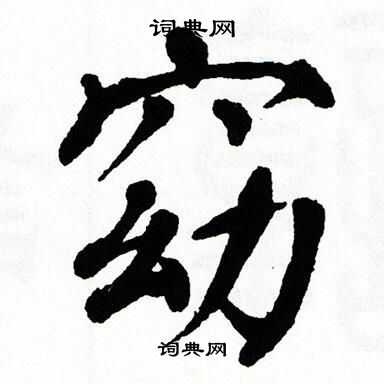 词典网
窈
词典网